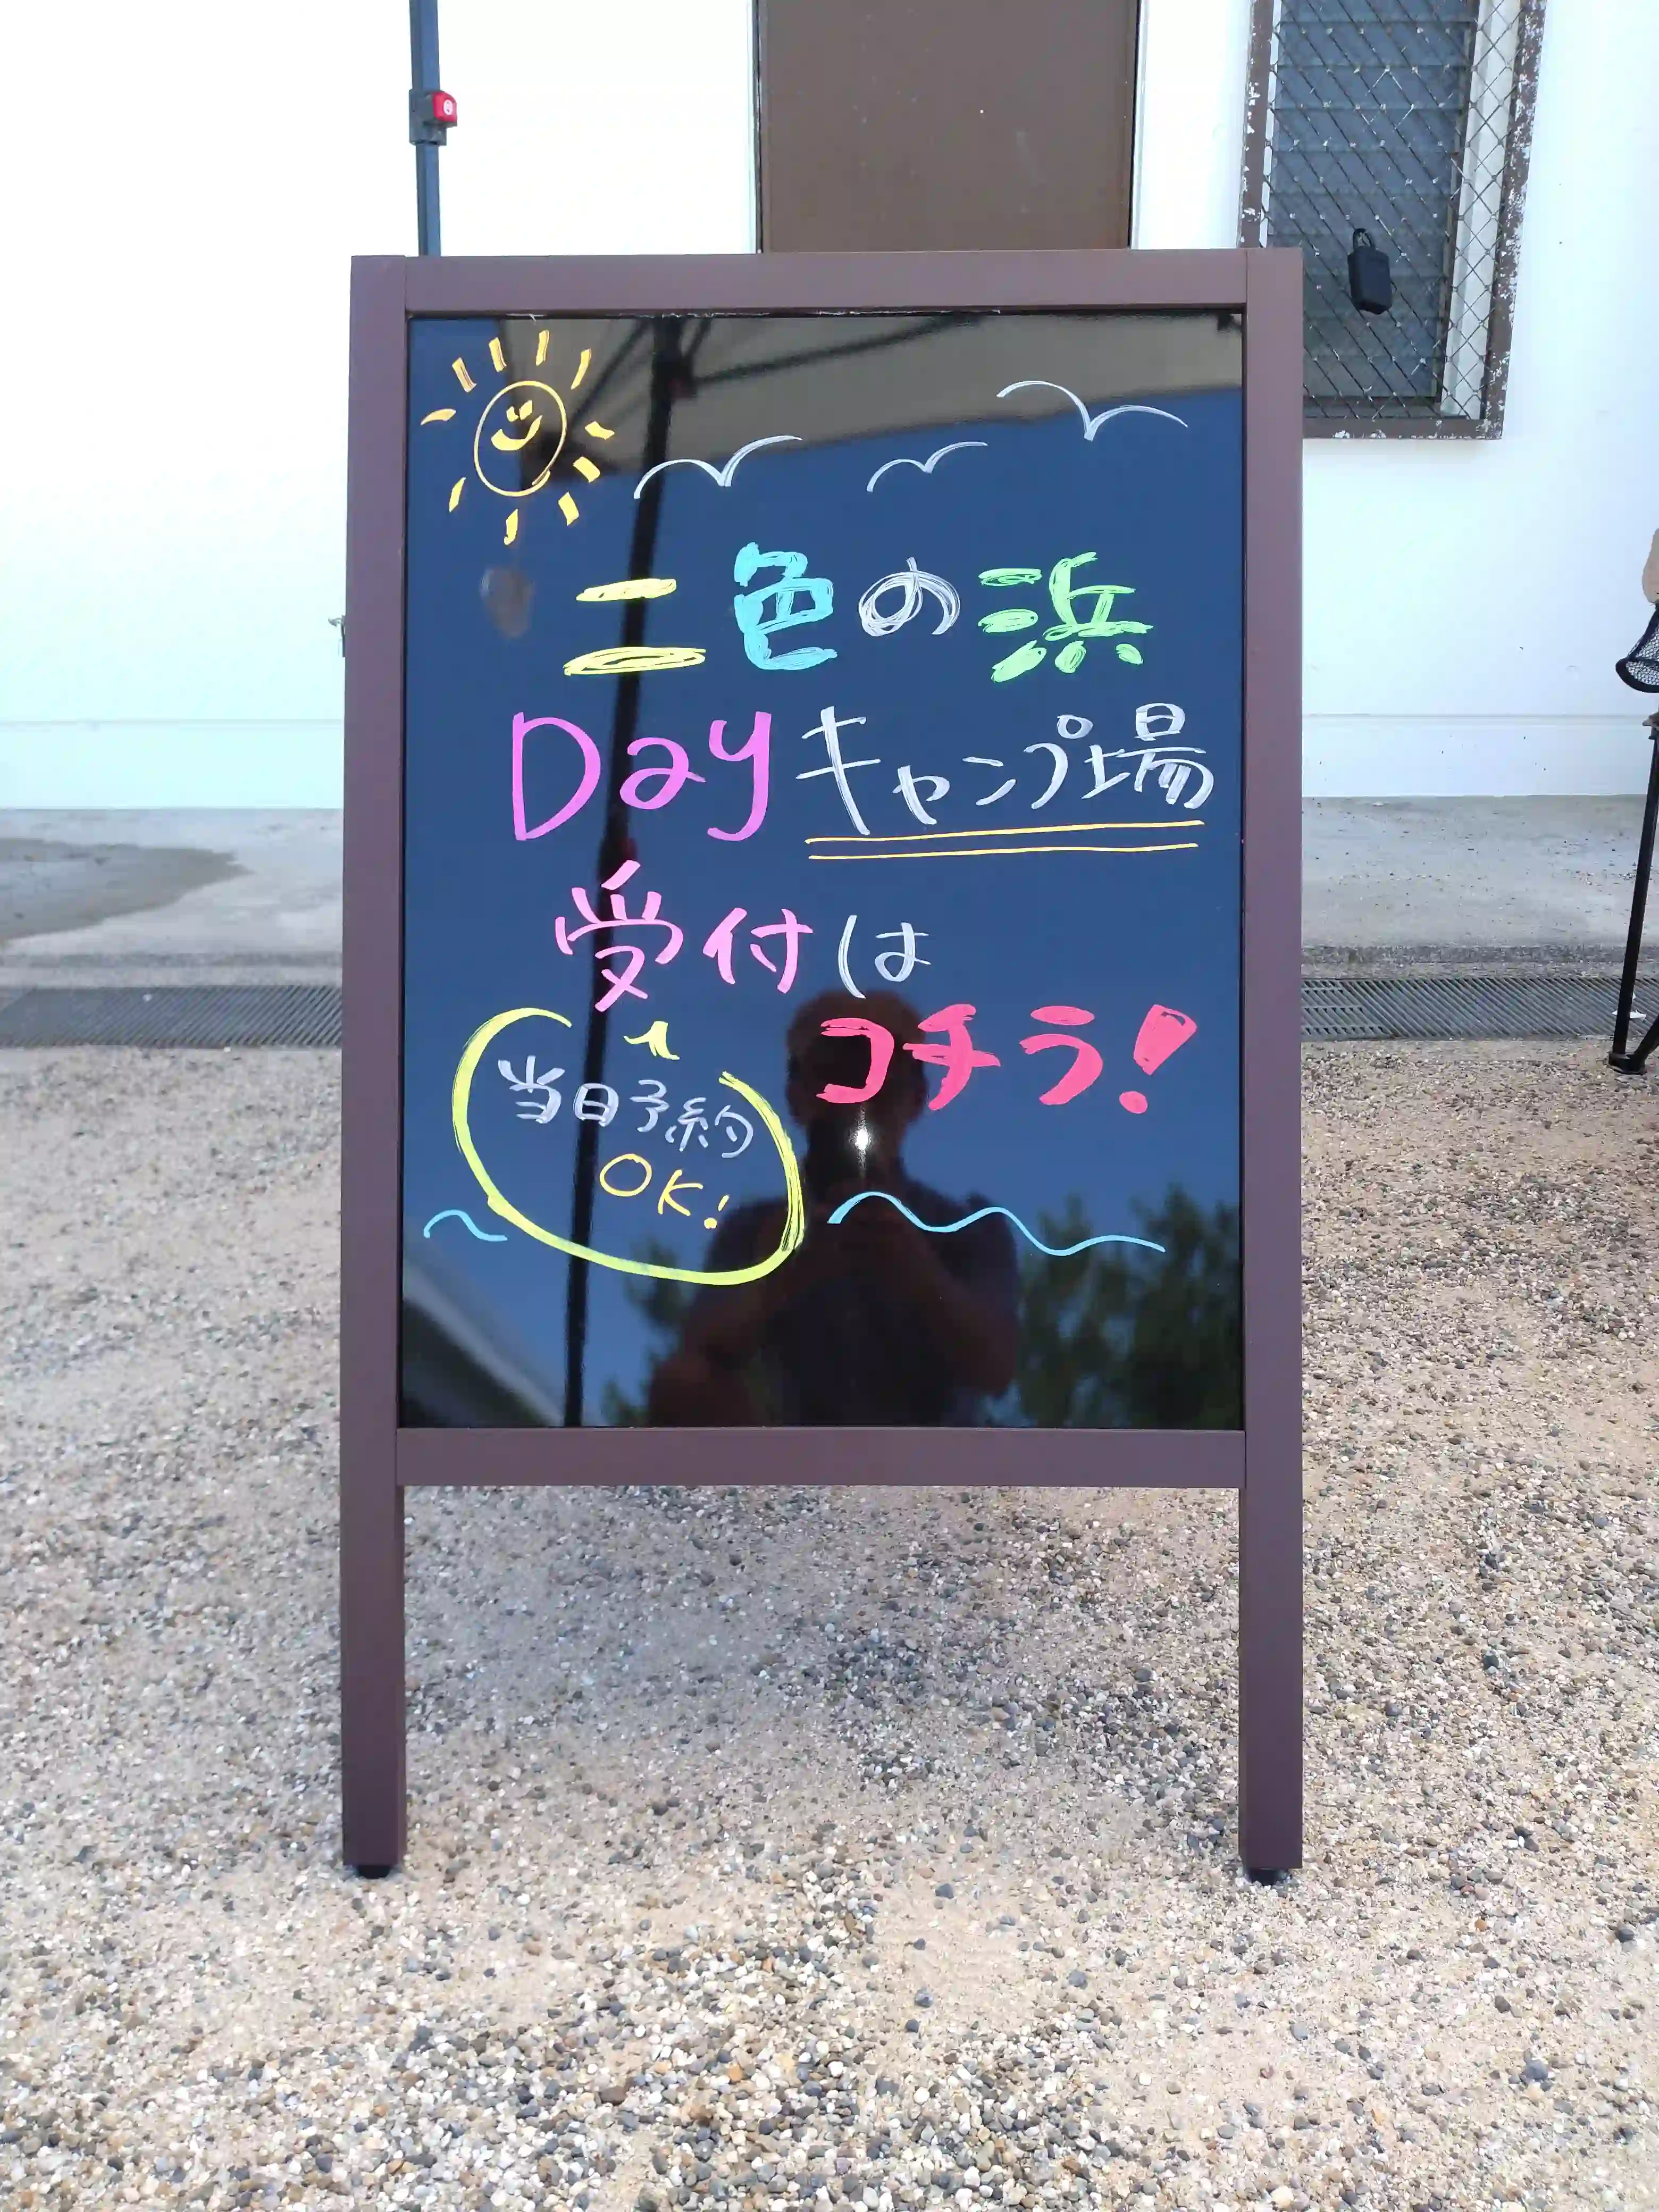 二色の浜
Dayキャンプ場
受付は
コチラ!
当日予約
OK!